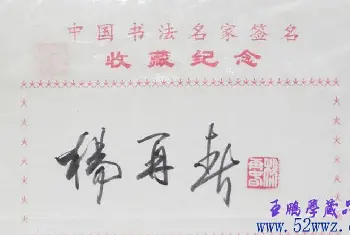 中国书法名家签名
收藏纪念
杨再春
王鹏学藏品
www.52wwz.c